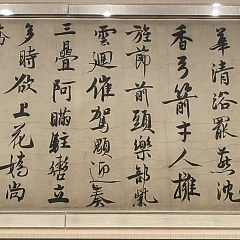 華清浴罷燕沈
香弓箭才人擁
旌節前頭樂部
雲迴催駕迎奏
三疊阿瞞駐轡立
多時欲上花嬌尚